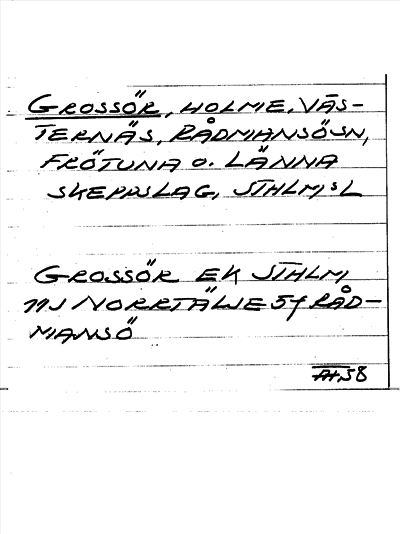 GROSSÖR, HOLME, VÄS-
TERNÄS, RÅDMANSÖSN,
FRÖTUNA O. LÄNNA
SKEPPSLAG, STHLMSL
GROSSÖR EK STHLM,
11J NORRTÄLJE 5f RÅD-
MANSÖ
AH58